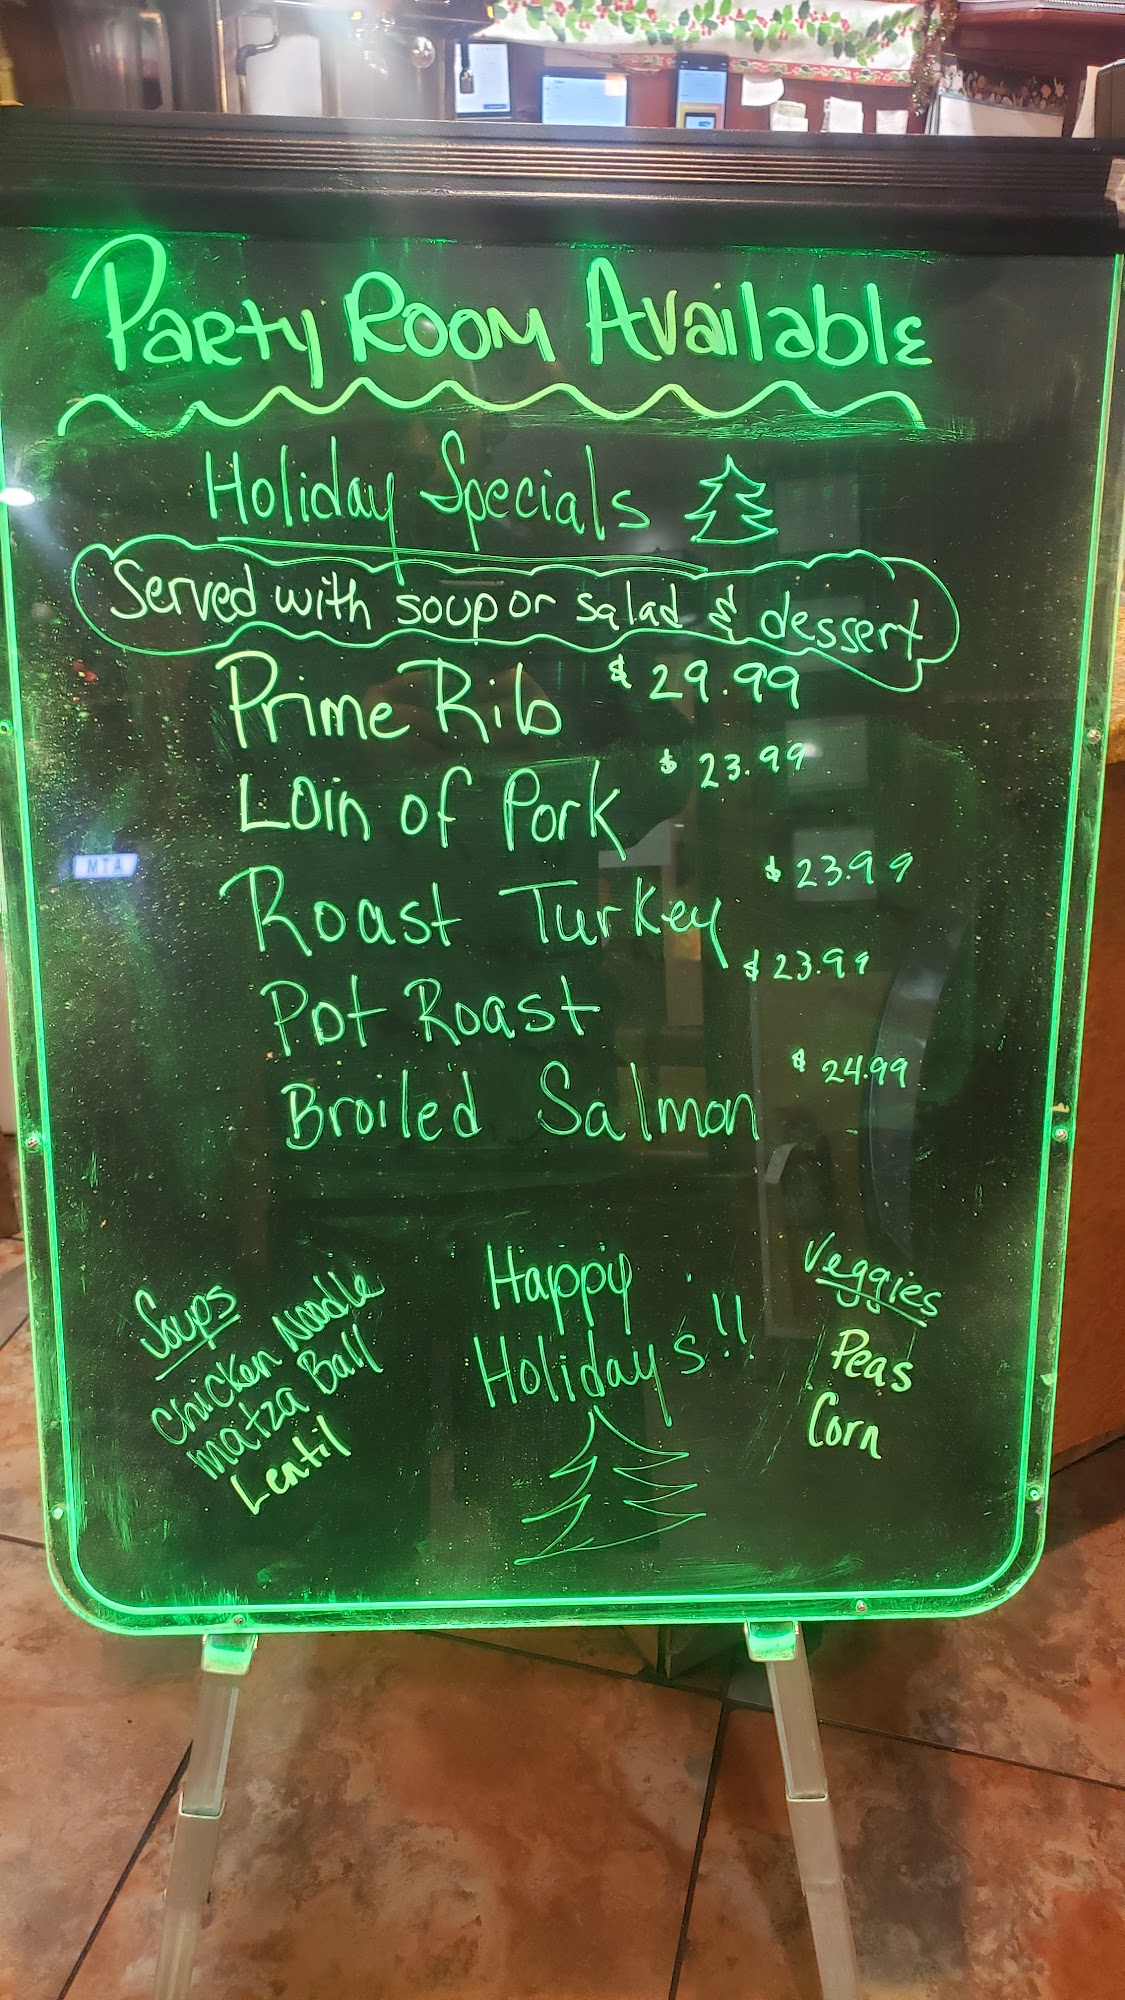 Party Room Available
Holiday Specials
Served with soup or salad & dessert
Prime Rib $29.99
Loin of Pork $23.99
Roast Turkey $23.99
Pot Roast $23.99
Broiled Salmon $24.99
Soups
Chicken Noodle
Matza Ball
Lentil
Happy
Holidays!!
Veggies
Peas
Corn
MTA